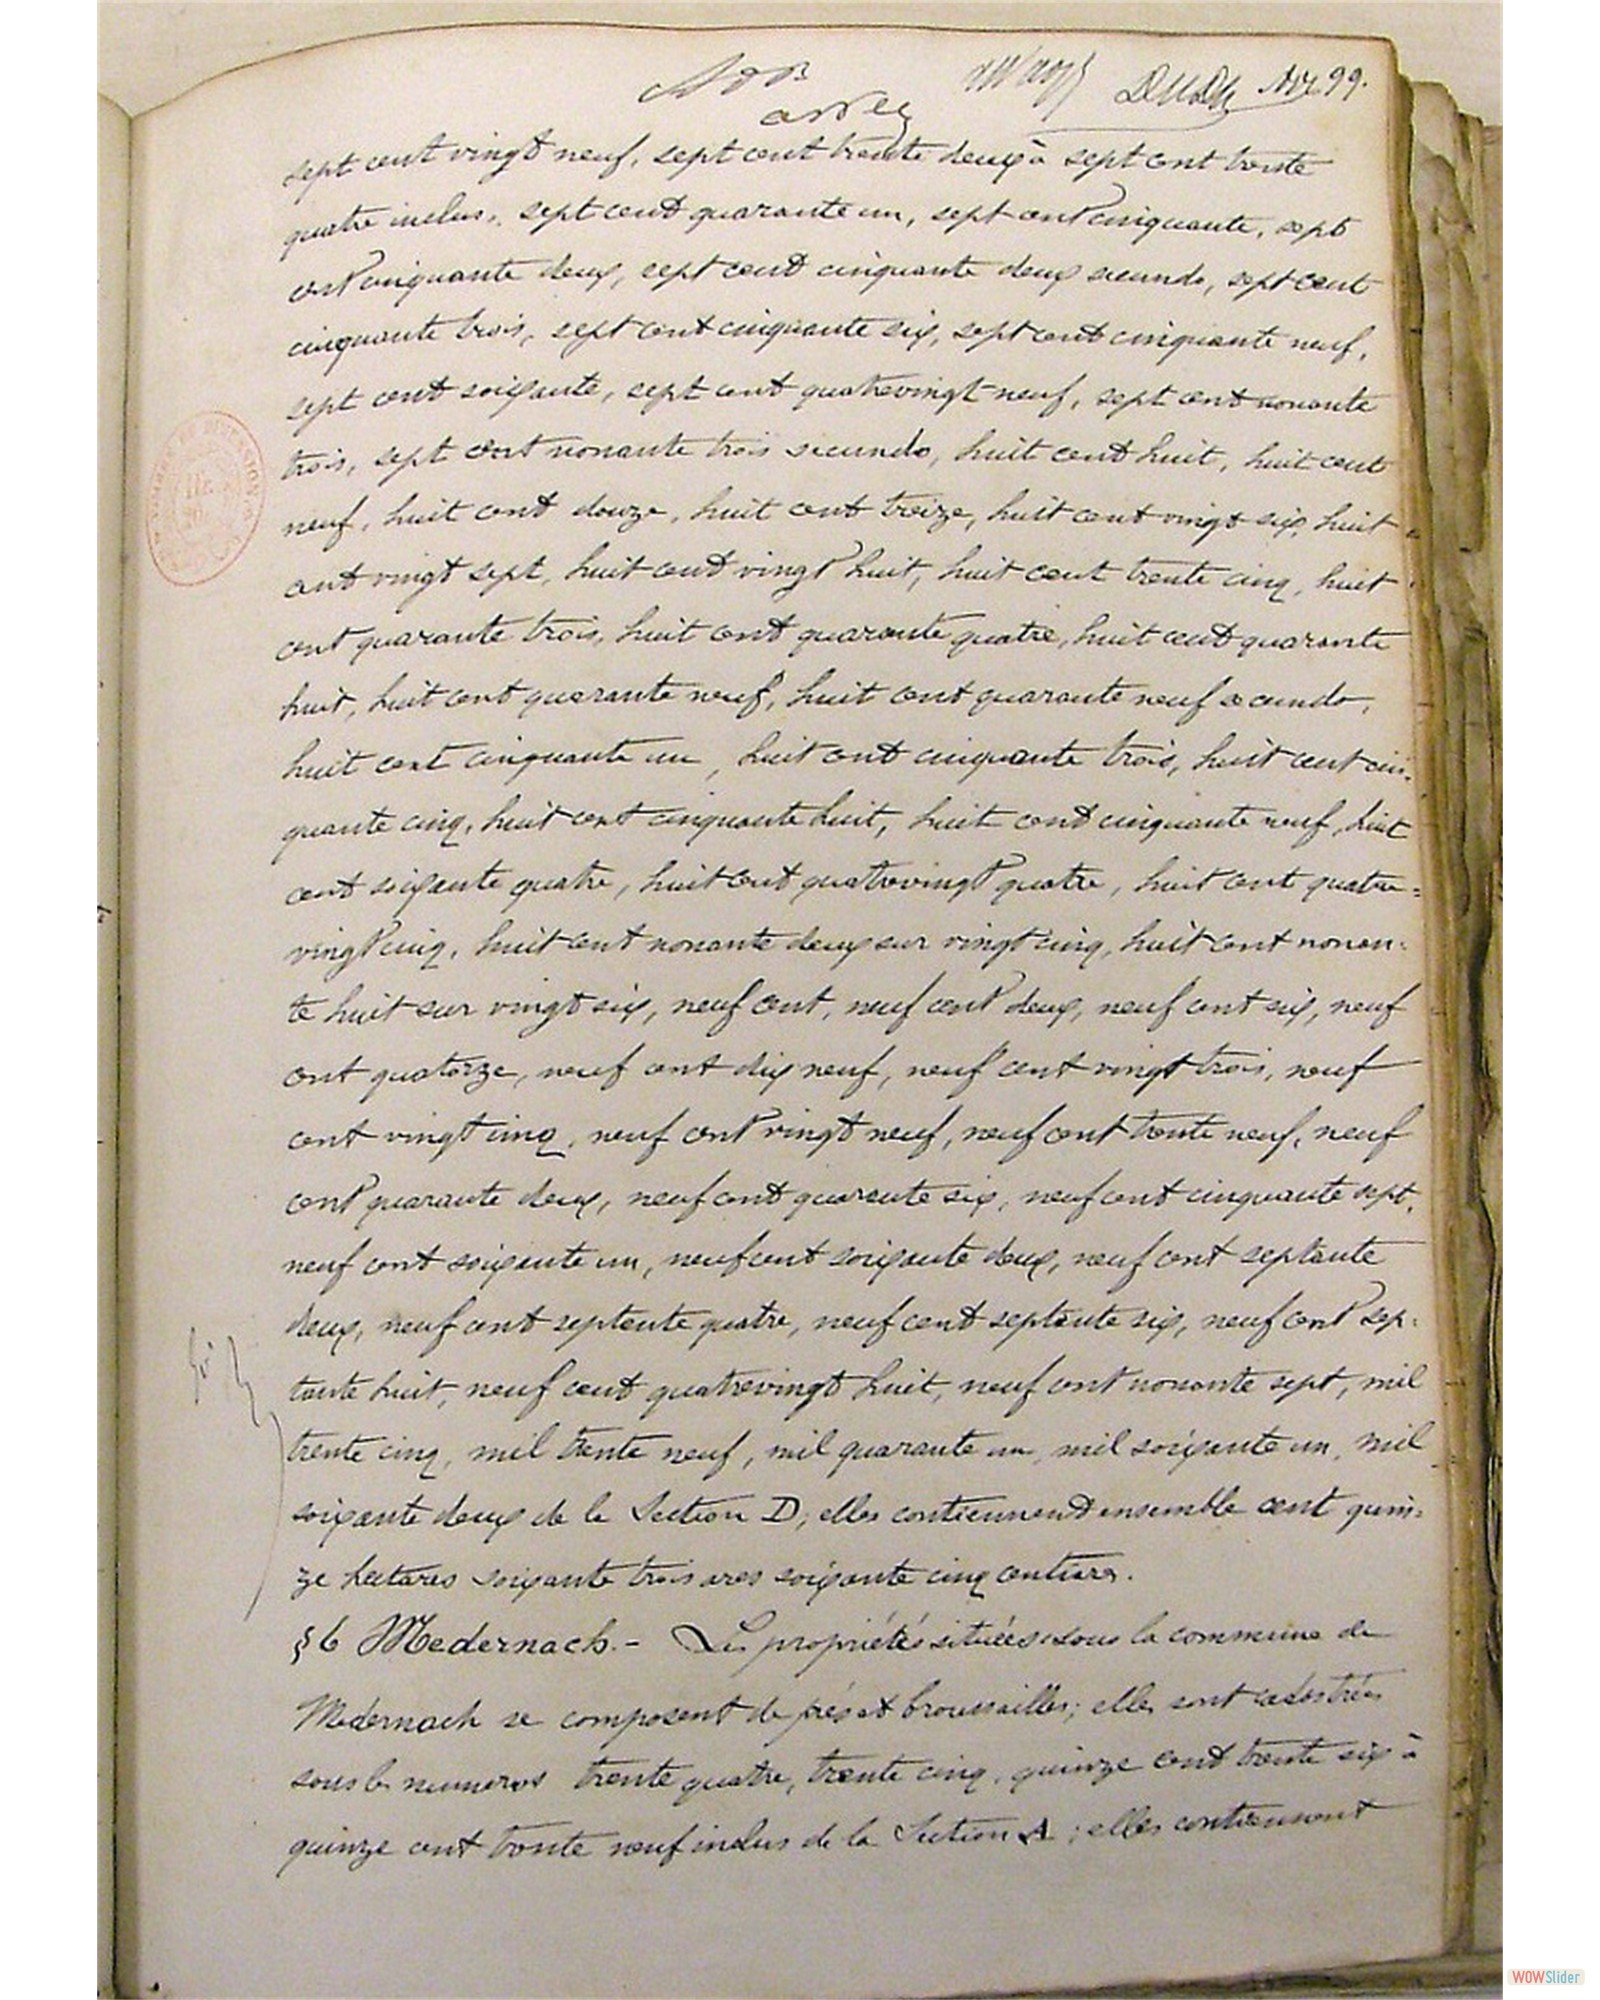 99.
sept cent vingt neuf, sept cent trente deux à sept cent trente
quatre inclus, sept cent quarante un, sept cent cinquante, sept
cent cinquante deux, sept cent cinquante deux secundo, sept cent
cinquante trois, sept cent cinquante six, sept cent cinquante neuf,
sept cent soixante, sept cent quatrevingt neuf, sept cent nonante
trois, sept cent nonante trois secundo, huit cent huit, huit cent
neuf, huit cent douze, huit cent treize, huit cent vingt six, huit
cent vingt sept, huit cent vingt huit, huit cent trente cinq, huit
cent quarante trois, huit cent quarante quatre, huit cent quarante
huit, huit cent quarante neuf, huit cent quarante neuf secundo,
huit cent cinquante un, huit cent cinquante trois, huit cent cin-
quante cinq, huit cent cinquante huit, huit cent cinquante neuf, huit
cent soixante quatre, huit cent quatrevingt quatre, huit cent quatre=
vingt cinq, huit cent nonante deux sur vingt cinq, huit cent nonan-
te huit sur vingt six, neuf cent, neuf cent deux, neuf cent six, neuf
cent quatorze, neuf cent dix neuf, neuf cent vingt trois, neuf
cent vingt cinq, neuf cent vingt neuf, neuf cent trente neuf, neuf
cent quarante deux, neuf cent quarante six, neuf cent cinquante sept,
neuf cent soixante un, neuf cent soixante deux, neuf cent septante
deux, neuf cent septante quatre, neuf cent septante six, neuf cent sep-
tante huit, neuf cent quatrevingt huit, neuf cent nonante sept, mil
trente cinq, mil trente neuf, mil quarante un, mil soixante un, mil
soixante deux de la Section D; elles contiennent ensemble cent quin-
ze hectares soixante trois ares soixante cinq centiares.
§6 Medernach.- Les propriétés situées sous la commune de
Medernach se composent de prés et broussailles; elles sont cadastrées
sous les numeros trente quatre, trente cinq, quinze cent trente six à
quinze cent trente neuf inclus de la Section A; elles contiennent
WOWSlider